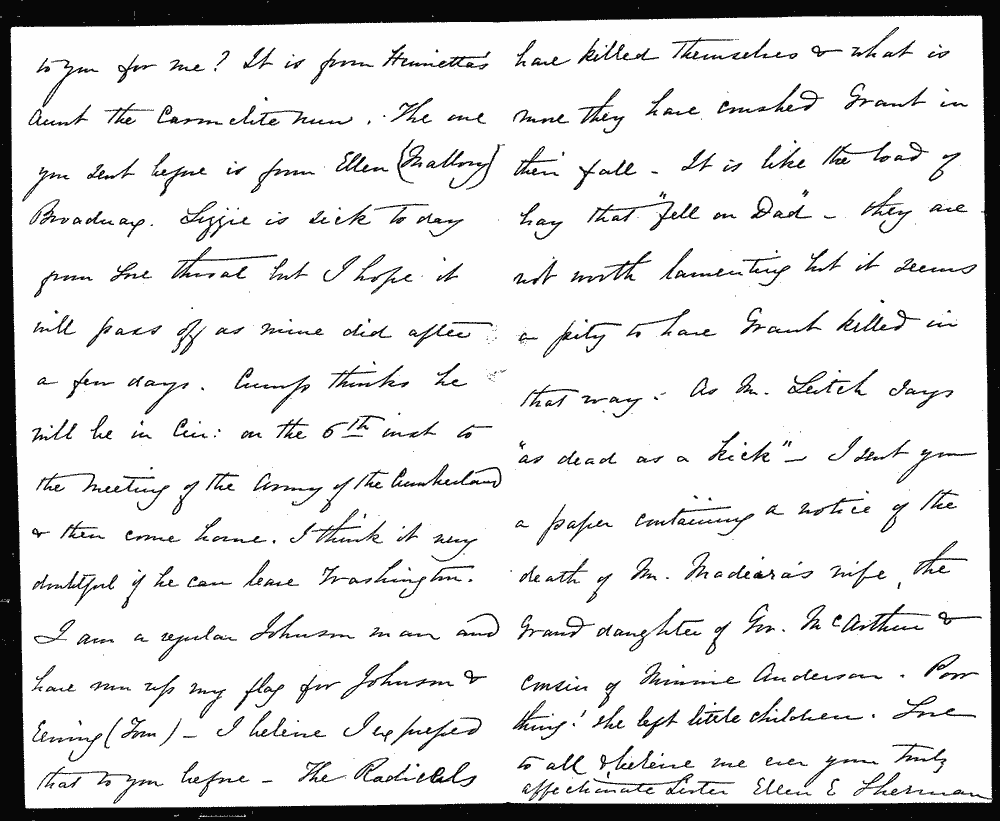 to you for me? It is from Henrietta's
Aunt the Carmelite nun. The one
you sent before is from Ellen (Mallory)
Broadnax. Lizzie is sick to day
from sore throat but I hope it
will pass off as mine did after
a few days. Cump thinks he
will be in Cin: on the 6th inst to
the Meeting of the Army of the Cumberland
& then come home. I think it very
doubtful if he can leave Washington.
I am a regular Johnson man and
have run up my flag for Johnson &
Ewing (Tom) - I believe I expressed
that to you before - The Radicals
have killed themselves & what is
more they have crushed Grant in
their fall - It is like the load of
hay that "fell on Dad" - they are
not worth lamenting but it seems
a pity to have Grant killed in
that way - As Mr. Leitch says
"as dead as a kick" - I sent you
a paper containing a notice of the
death of Mr. Madeira's wife, the
Grand daughter of Gov. McArthur &
cousin of Minnie Anderson. Poor
thing! she left little children. Love
to all & believe me ever your truly
affectionate Sister Ellen E Sherman